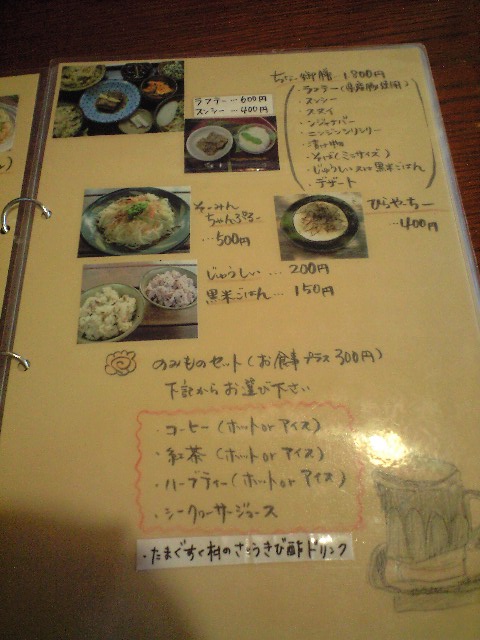 御膳 … 1800円
・ラフテー(県産豚使用)
・スンシー
・ンジャナバー
・ニンジンシリシリー
・漬け物
・そば(ミニサイズ)
・じゅうしぃ又は黒米ごはん
・デザート
ラフテー … 600円
スンシー … 400円
そーみん
ちゃんぷるー
… 500円
ひらやーちー
… 400円
じゅうしぃ … 200円
黒米ごはん … 150円
のみものセット(お食事プラス300円)
下記からお選び下さい
・コーヒー(ホット or アイス)
・紅茶(ホット or アイス)
・ハーブティー(ホット or アイス)
・シークヮーサージュース
・たまぐすく村のさとうきび酢ドリンク